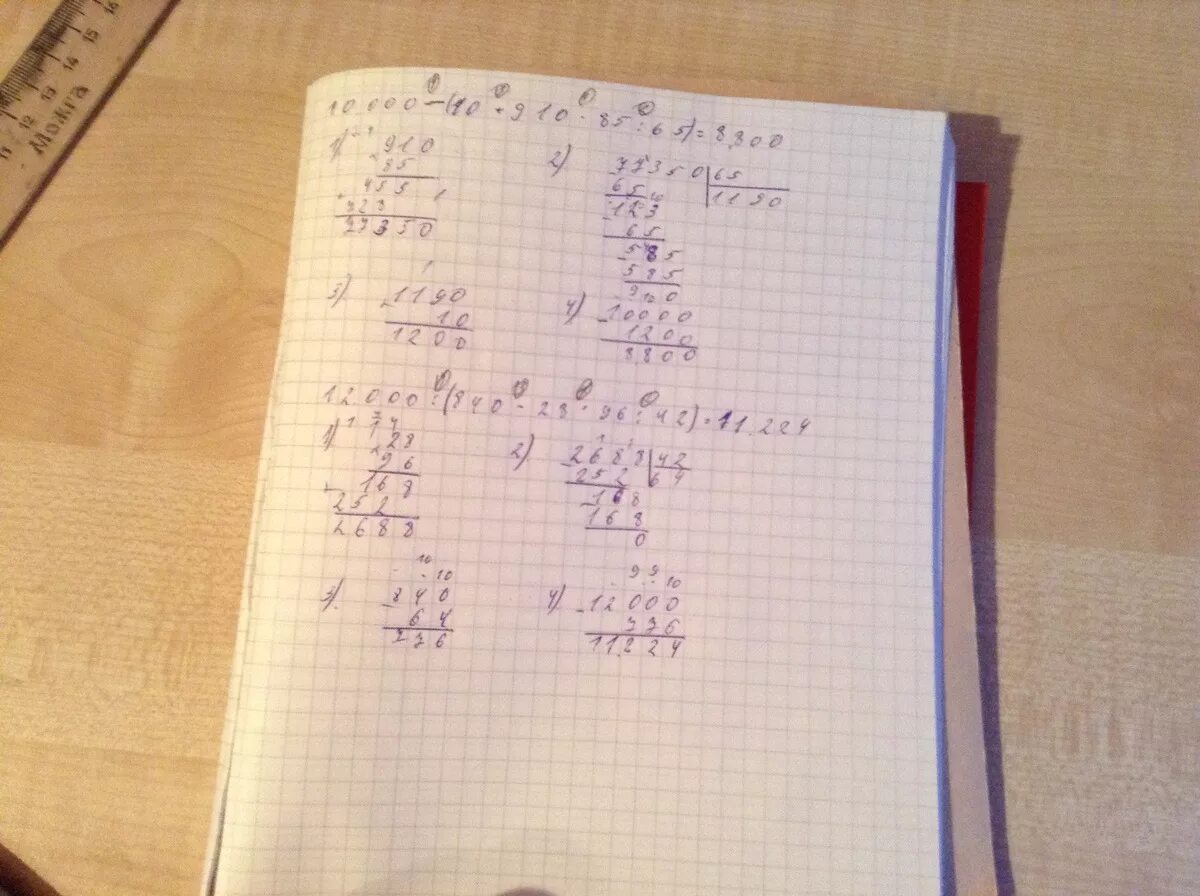 12 13 14 15
Можга
10.000-(10+910·85:65)=8.800
1) 910
85
455
728
77350
2) 77350 65
65 1190
123
65
585
585
0
3) 1190
10
1200
4) 10000
1200
8.800
12.000:(840-28·96:42)=11.224
1) 28
96
168
252
2688
2) 2688 42
252 64
168
168
0
3) 840
64
776
4) 12000
776
11.224